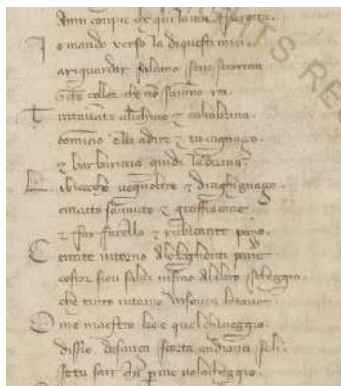 Anni conpie che qui la via fu rotta.
Io mando verso la di questi miei
a riguardar salcuno sene scorina
Gite collor che nō sarāno rei
Trateavāte alichino ⁊ calcabrina.
comīcio elli adire ⁊ tu cagnazo.
⁊ barbariccia guidi la decina.
Libicocco vegnoltre ⁊ draghignazo.
ciriatto sannuto ⁊ graffiacane
⁊ farfarello ⁊ rubicante pazo.
Cercate intorno le boglienti pane
costor sien salvi insino alaltro scheggio.
che tutto intorno
Ome maestro che e quel chi veggio.
dissio desanza scorta andianci soli.
se tu sair chi per me nolacheggio.
RIGHTS RE